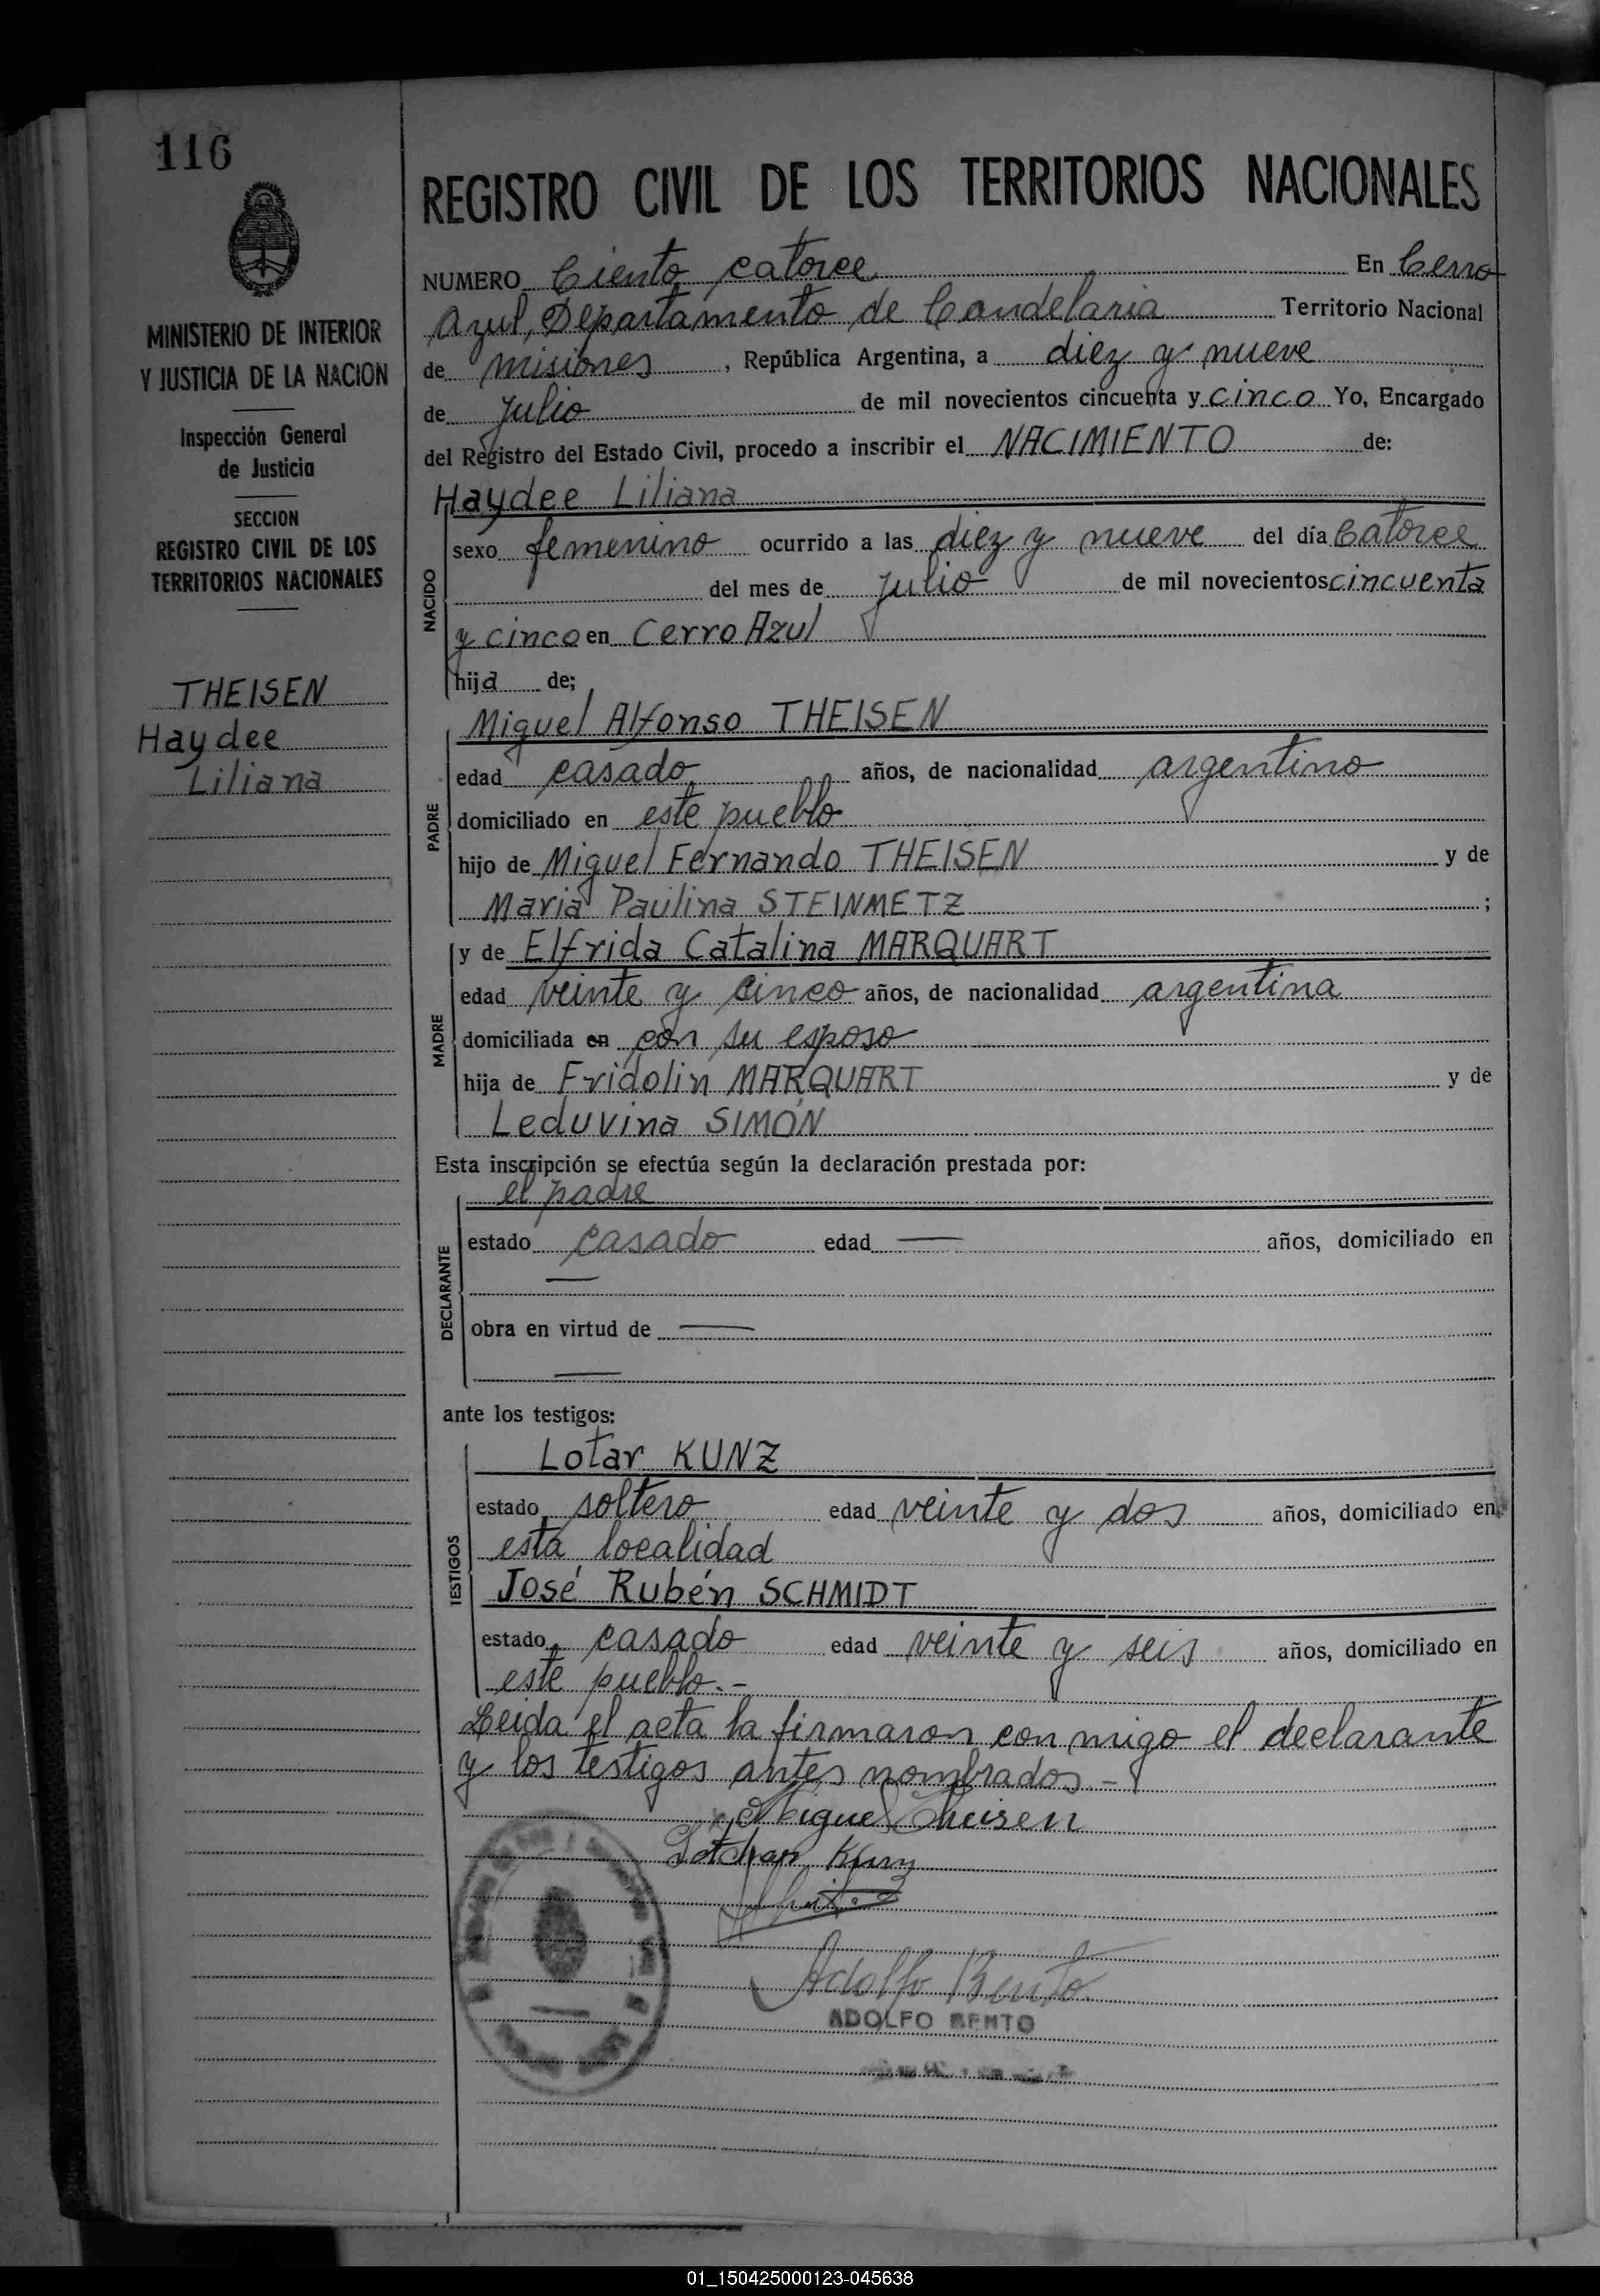 116
MINISTERIO DE INTERIOR
Y JUSTICIA DE LA NACION
Inspección General
de Justicia
SECCION
REGISTRO CIVIL DE LOS
TERRITORIOS NACIONALES
THEISEN
Haydee
Liliana
REGISTRO CIVIL DE LOS TERRITORIOS NACIONALES
NUMERO Ciento catorce En Cerro
Azul, Departamento de Candelaria Territorio Nacional
de misiones, República Argentina, a diez y nueve
de julio de mil novecientos cincuenta y cinco Yo, Encargado
del Registro del Estado Civil, procedo a inscribir el NACIMIENTO de:
Haydee Liliana
NACIDO
sexo femenino ocurrido a las diez y nueve del día Catorce
del mes de julio de mil novecientos cincuenta
y cinco en Cerro Azul
hija de;
PADRE
Miguel Alfonso THEISEN
edad casado años, de nacionalidad argentino
domiciliado en este pueblo
hijo de Miguel Fernando THEISEN y de
Maria Paulina STEINMETZ ;
MADRE
y de Elfrida Catalina MARQUART
edad veinte y cinco años, de nacionalidad argentina
domiciliada en con su esposo
hija de Fridolin MARQUART y de
Leduvina SIMÓN
Esta inscripción se efectúa según la declaración prestada por:
DECLARANTE
el padre
estado casado edad — años, domiciliado en
—
obra en virtud de —
—
ante los testigos:
TESTIGOS
Lotar KUNZ
estado soltero edad veinte y dos años, domiciliado en
esta localidad
José Rubén SCHMIDT
estado casado edad veinte y seis años, domiciliado en
este pueblo.-
Leida el acta la firmaron con migo el declarante
y los testigos antes nombrados -
Miguel Theisen
Lothar Kunz
Adolfo Bento
ADOLFO BENTO
01_150425000123-045638